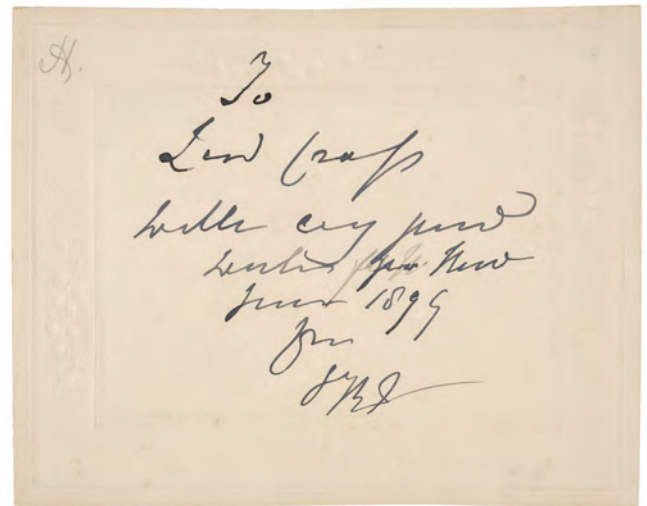 To
Lord Cross
with good
wishes for New
Year 1899
from
VRI